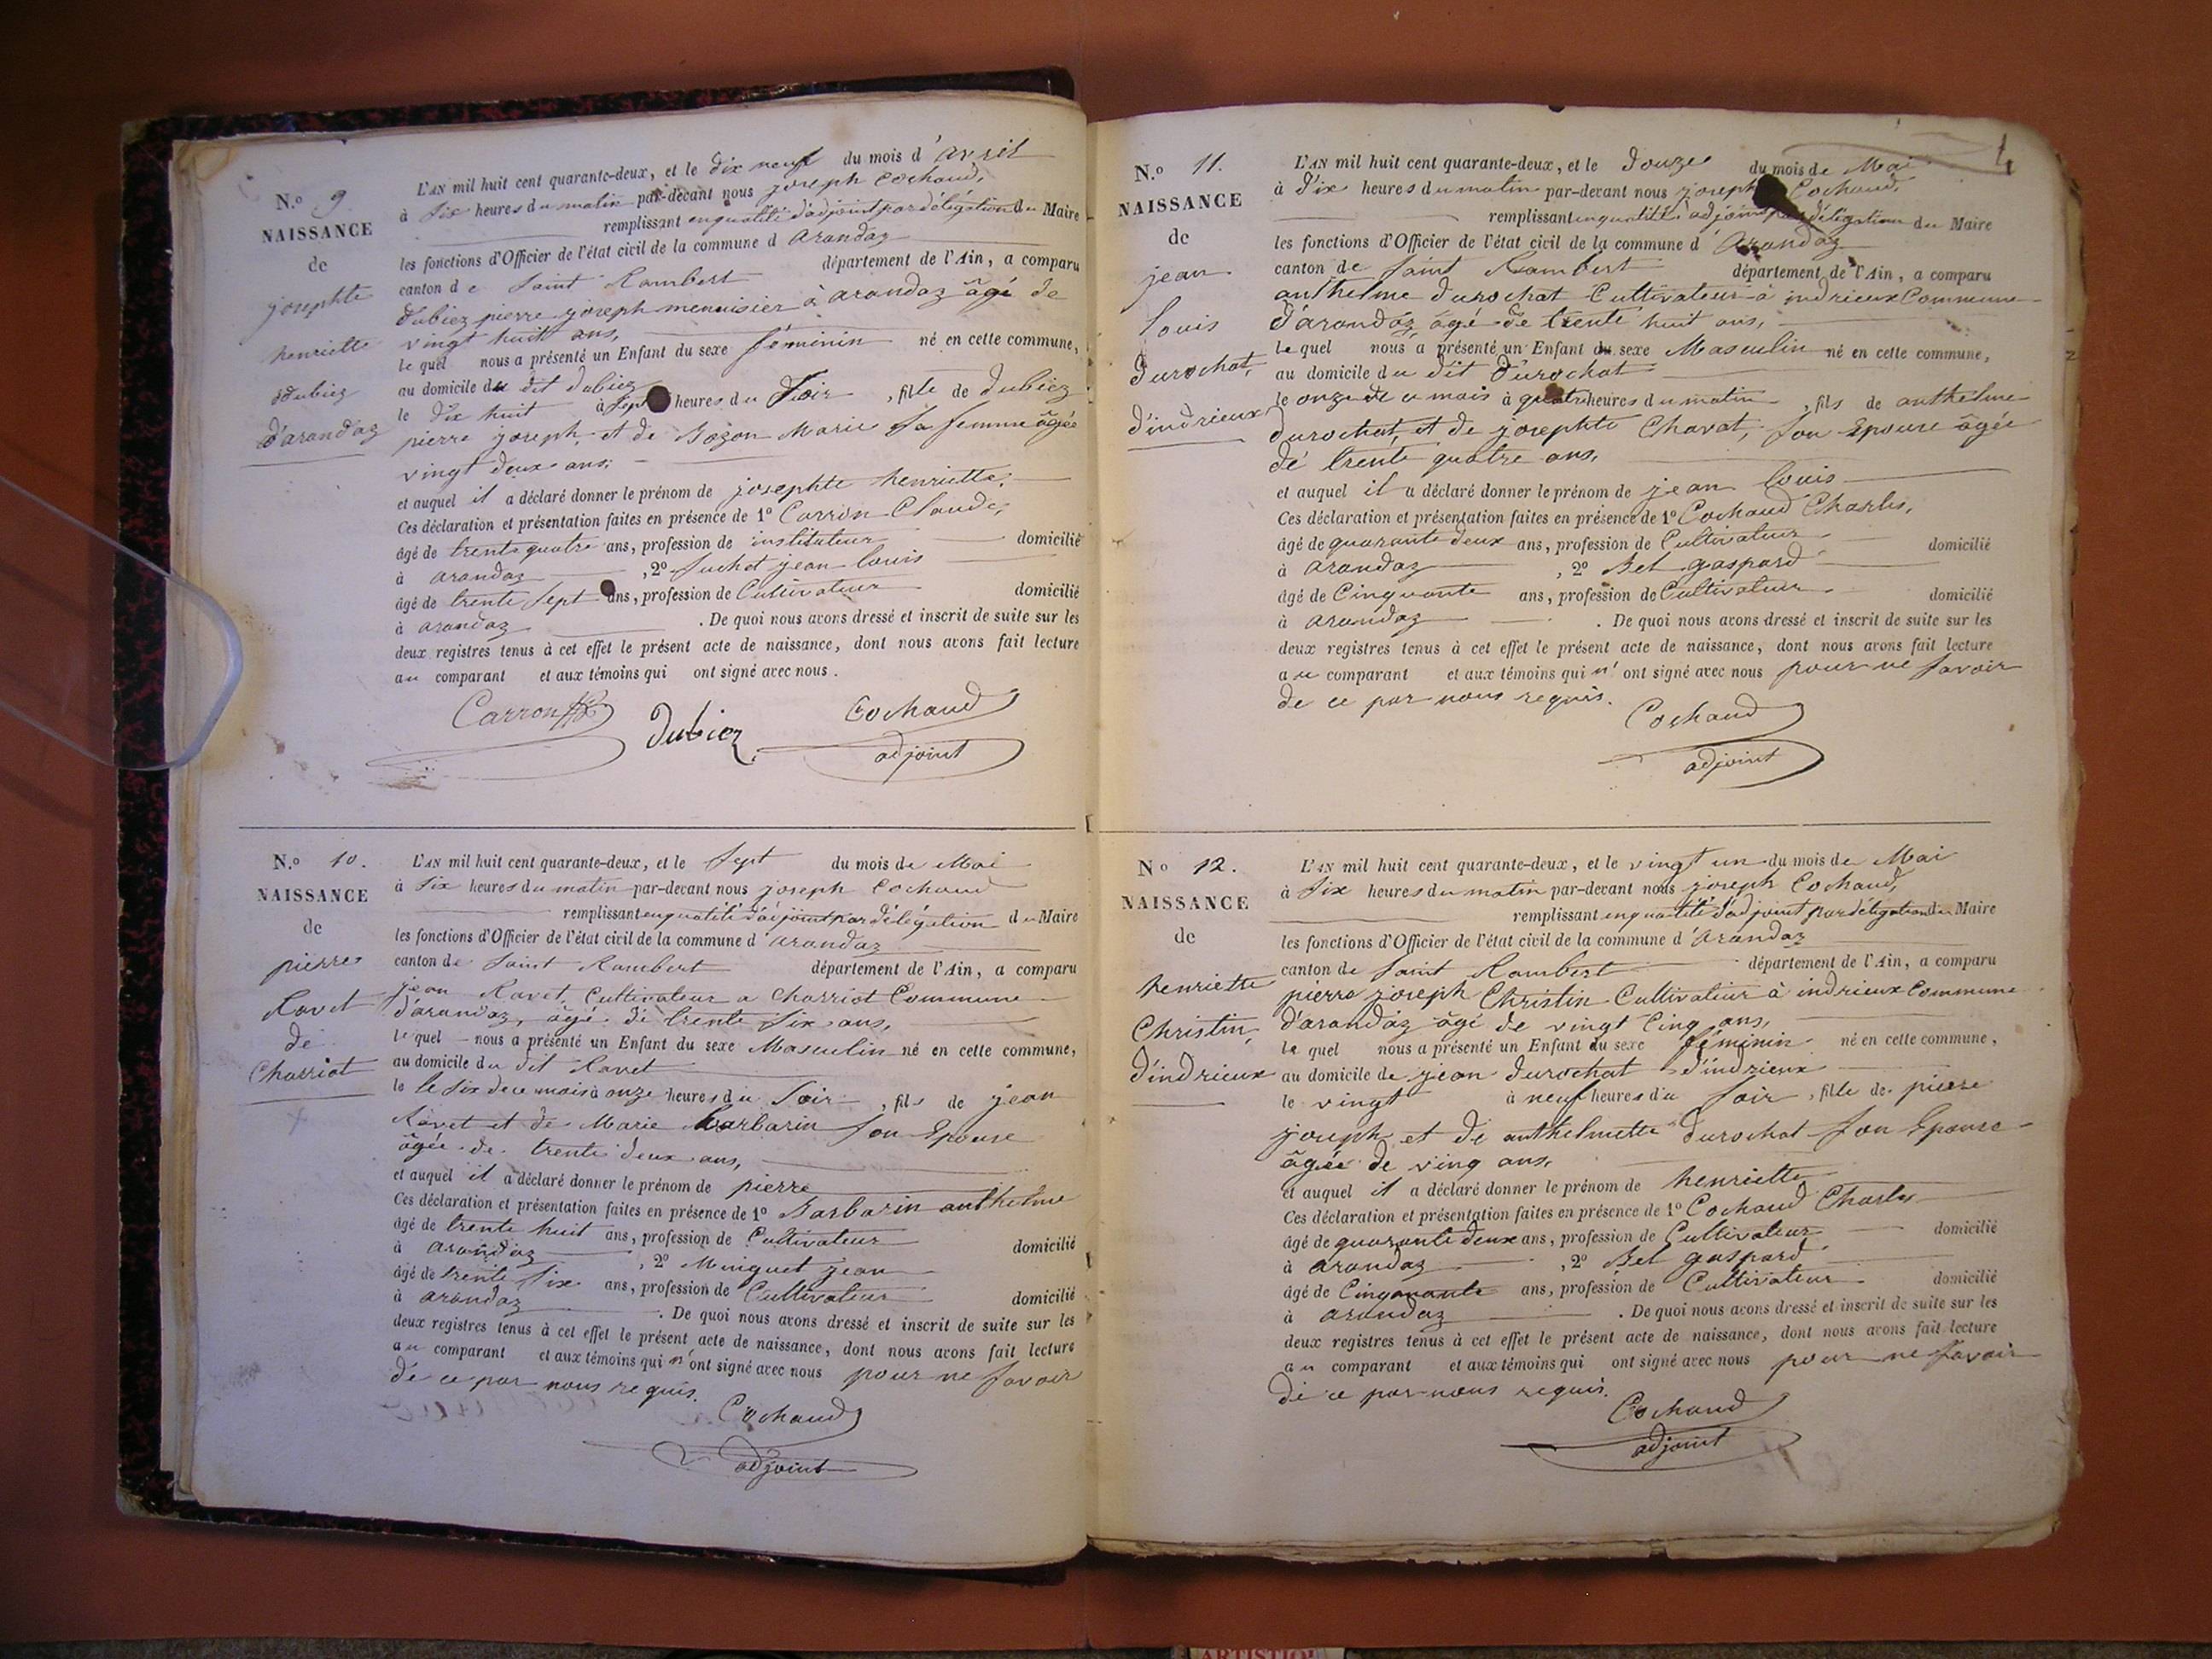 N.o 9
NAISSANCE
de
josephte
henriette
Dubiez
d'arandaz
L'AN mil huit cent quarante-deux, et le dix neuf du mois d'avril
à six heures du matin par-devant nous joseph Cochaud,
remplissant en qualité d'adjoint par délégation du Maire
les fonctions d'Officier de l'état civil de la commune d'arandaz
canton de Saint Rambert département de l'Ain, a comparu
Dubiez pierre joseph menuisier à arandaz âgé de
vingt huit ans,
le quel nous a présenté un Enfant du sexe féminin né en cette commune,
au domicile du dit dubiez
le dix huit à sept heures du Soir, fille de dubiez
pierre joseph, et de Bozon Marie sa femme âgée
vingt deux ans;
et auquel il a déclaré donner le prénom de josephte henriette.
Ces déclaration et présentation faites en présence de 1o Carron Claude,
âgé de trente quatre ans, profession de instituteur domicilié
à arandaz, 2o Suchet jean louis
âgé de trente sept ans, profession de Cultivateur domicilié
à arandaz. De quoi nous avons dressé et inscrit de suite sur les
deux registres tenus à cet effet le présent acte de naissance, dont nous avons fait lecture
au comparant et aux témoins qui ont signé avec nous.
Carron Dubiez Cochaud
adjoint
N.o 10.
NAISSANCE
de
pierre
Ravet
de
Charriot
L'AN mil huit cent quarante-deux, et le Sept du mois de Mai
à six heures du matin par-devant nous joseph Cochaud
remplissant en qualité d'adjoint par délégation du Maire
les fonctions d'Officier de l'état civil de la commune d'arandaz
canton de Saint Rambert département de l'Ain, a comparu
jean Ravet, Cultivateur a Charriot Commune
d'arandaz, âgé de trente six ans,
le quel nous a présenté un Enfant du sexe Masculin né en cette commune,
au domicile du dit Ravet
le le six de ce mois à onze heures du Soir, fils de jean
Ravet et de Marie Barbarin son Epouse
âgée de trente deux ans,
et auquel il a déclaré donner le prénom de pierre
Ces déclaration et présentation faites en présence de 1o Barbarin anthelme
âgé de trente huit ans, profession de Cultivateur
à arandaz domicilié
, 2o Minguet jean
âgé de trente six ans, profession de Cultivateur
à arandaz domicilié
. De quoi nous avons dressé et inscrit de suite sur les
deux registres tenus à cet effet le présent acte de naissance, dont nous avons fait lecture
au comparant et aux témoins qui n'ont signé avec nous pour ne savoir
de ce par nous requis.
Cochaud
adjoint
4
N.o 11.
NAISSANCE
de
jean
louis
Durochat,
d'indrieux
L'AN mil huit cent quarante-deux, et le Douze du mois de Mai
à Dix heures du matin par-devant nous joseph Cochaud,
remplissant en qualité d'adjoint par délégation du Maire
les fonctions d'Officier de l'état civil de la commune d'Arandaz
canton de Saint Rambert département de l'Ain, a comparu
anthelme Durochat Cultivateur à indrieux Commune
d'arandaz âgé de trente huit ans,
le quel nous a présenté un Enfant du sexe Masculin né en cette commune,
au domicile du dit Durochat
le onze de ce mois à quatre heures du matin, fils de anthelme
Durochat, et de josephte Chavat, son Epouse âgée
de trente quatre ans,
et auquel il a déclaré donner le prénom de jean louis
Ces déclaration et présentation faites en présence de 1o Cochaud Charles,
âgé de quarante deux ans, profession de Cultivateur domicilié
à arandaz, 2o Bel gaspard
âgé de Cinquante ans, profession de Cultivateur domicilié
à arandaz. De quoi nous avons dressé et inscrit de suite sur les
deux registres tenus à cet effet le présent acte de naissance, dont nous avons fait lecture
au comparant et aux témoins qui n'ont signé avec nous pour ne savoir
de ce par nous requis.
Cochaud
adjoint
No 12.
NAISSANCE
de
henriette
Christin,
d'indrieux
L'AN mil huit cent quarante-deux, et le vingt un du mois de Mai
à six heures du matin par-devant nous joseph Cochaud,
remplissant en qualité d'adjoint par délégation du Maire
les fonctions d'Officier de l'état civil de la commune d'arandaz
canton de Saint Rambert département de l'Ain, a comparu
pierre joseph Christin Cultivateur à indrieux Commune
d'arandaz âgé de vingt Cinq ans,
le quel nous a présenté un Enfant du sexe féminin né en cette commune,
au domicile de jean durochat d'indrieux
le vingt à neuf heures du soir, fille de pierre
joseph et de anthelmette Durochat son Epouse
âgée de ving ans,
et auquel il a déclaré donner le prénom de henriette
Ces déclaration et présentation faites en présence de 1o Cochaud Charles
âgé de quarante deux ans, profession de Cultivateur domicilié
à arandaz, 2o Bel gaspard
âgé de Cinquante ans, profession de Cultivateur domicilié
à arandaz. De quoi nous avons dressé et inscrit de suite sur les
deux registres tenus à cet effet le présent acte de naissance, dont nous avons fait lecture
au comparant et aux témoins qui ont signé avec nous pour ne savoir
de ce par nous requis.
Cochaud
adjoint